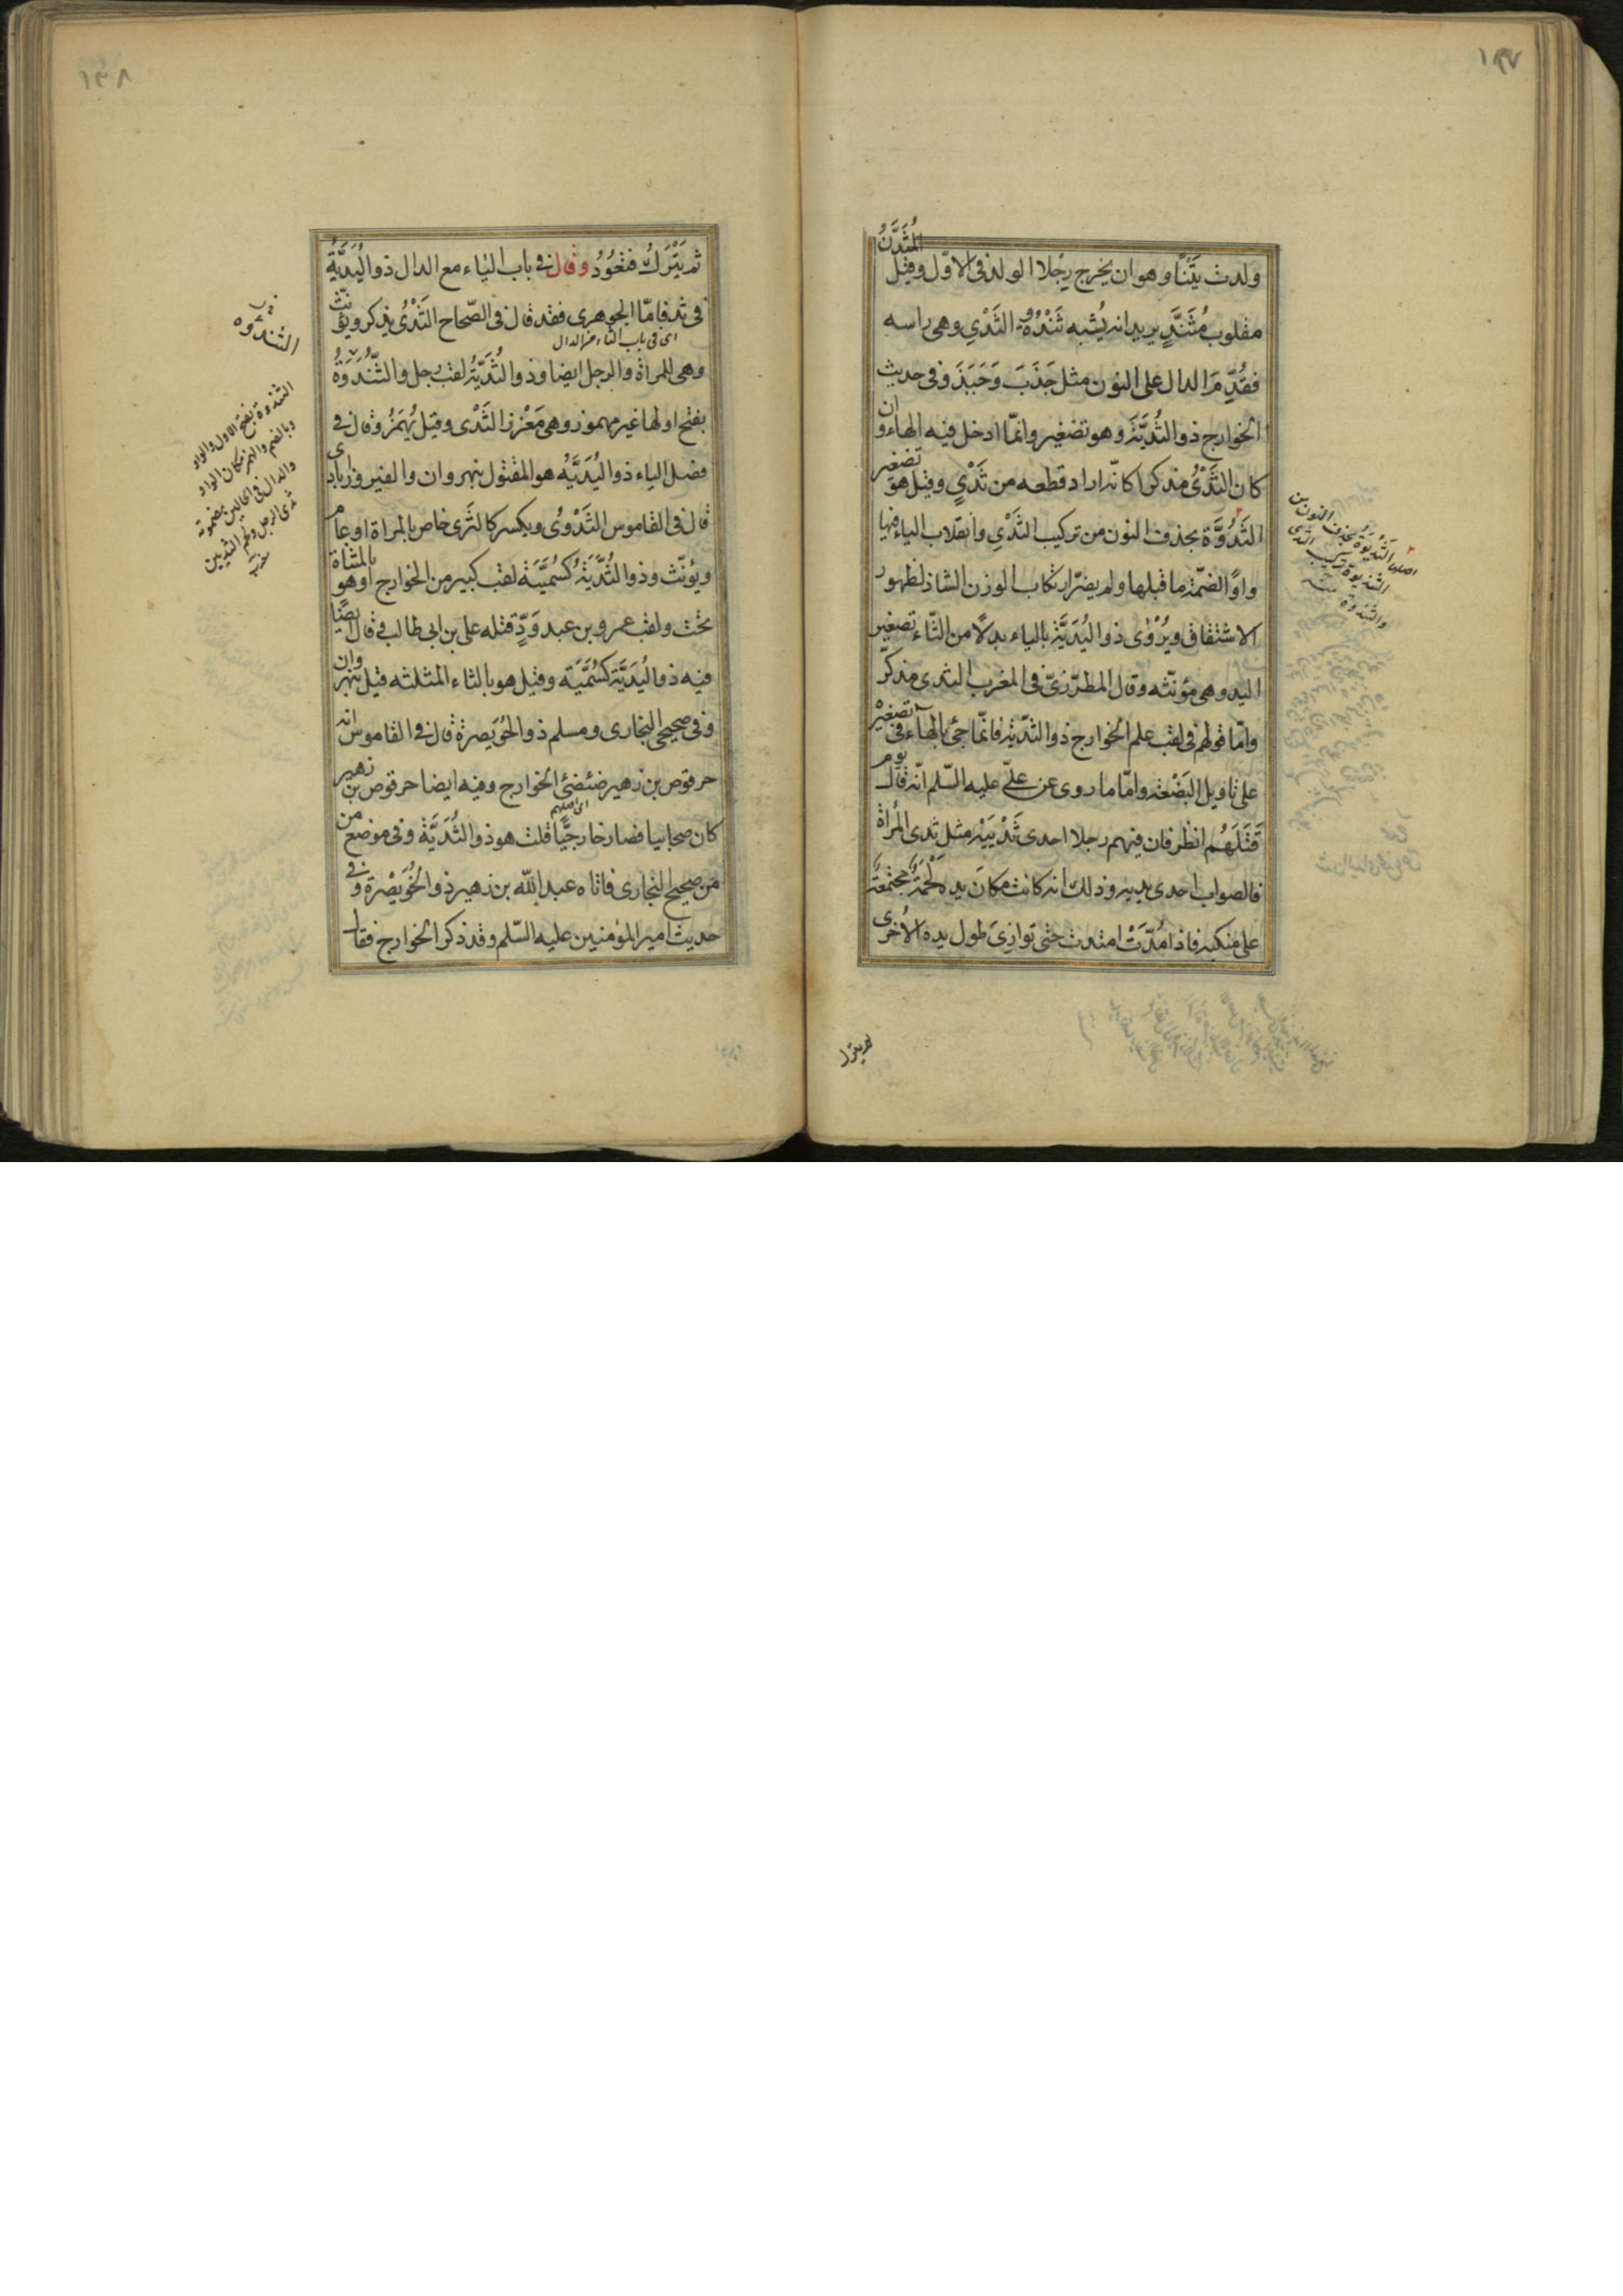 ١٣٧
ولدت يَتْنًا وهو ان يخرج رِجْلا الولد فى الاوّل وقيل المُثَدَّنُ
مقلوب مُثَنَّدٍ يريد انه يُشبه ثَنْدُوَة الثَدْيِ وهى راسه
فقُدِّمَ الدال على النون مثل جَذَبَ وَجَبَذَ وفى حديث
الخوارج ذو الثُدَيَّة وهو تصغير وانمّا ادخل فيه الهاء وان
كان الثَدْىُ مذكرا كانّه اراد قطعه من ثَدْيٍ وقيل هو تصغير
الثَدُوَّة بحذف النون من تركيب الثَدْيِ وانقلاب الياء فيها
واوًا لضمّة ما قبلها ولم يضرّ ارتكاب الوزن الشاذ لظهور
الاشتقاق ويُرْوٰى ذو اليُدَيَّة بالياء بدلًا من الثّاء تصغير
اليد وهى مؤنّثه وقال المطرّزىّ فى المغرب الثدى مذكّر
وامّا قولهم فى لقب علم الخوارج ذو الثديّة فانمّا جئ بالهاء فى تصغيْر
على تاويل البَضْعة وامّا ما روى عن علىّ عليه السّلم انّه قال يوم
قَتَلَهُم انظر فان فيهم رجلا احدى ثَدْيَيْه مثل ثدى المرأة
فالصواب احدى يديه وذلك انه كانت مكان يده لَحْمَةٌ مجتمعةٌ
على منكبه فاذا مُدَّتْ امتدت حتى توازىَ طول يده الأخرى
ثم يترك
اصلها الثَّدْيُوَة بحذف النون من
الثنديوة تركيب الثدى
والثندوة
١٣٨
ثم يَتْرَك فتعُوُدُ وقال فى باب الياء مع الدال ذو اليُدَيَّةِ
فى ثد فامّا الجوهرى فقد قال فى الصّحاح الثَدْىُ يذكر ويؤنّث
اى فى باب الثاء من الدال
وهى للمراة والرجل ايضا وذو الثُدَيَّةُ لقب رجل والثَّنْدُوَةُ
بفتح اولها غير مهموز وهى مَغْرِز الثَدْى وقيل يُهمَزُ وقال فى
فصل الياء ذو اليُدَيَّه هو المقتول بنهروان والفيروزابادى
قال فى القاموس الثَدْىُ ويكسر كالثَرى خاص بالمراة او عام
ويؤنّث وذو الثُدَيَّةُ كُسُمَيَّة لقب كبير من الخوارج او هو بالمثناة
تحت ولقب عمرو بن عبد وَدٍّ قتله على بن ابى طالب وقال ايضًا
فيه ذو اليُدَيَّة كسُمَيَّة وقيل هو بالثاء المثلثه قيل بنهروان
وفى صحيحى البخارى ومسلم ذو الخُوَيصرة قال فى القاموس انه
حرقوص بن زهير ضئضئ الخوارج وفيه ايضا حرقوص بن زهير
اى اصلهم
كان صحابيا فصار خارجيًّا قلت هو ذو الثُدَيَّة وفى موضع من
من صحيح البخارى فاتاه عبد الله بن زهير ذو الخُوَيْصْرة وفى
حديث امير المؤمنين عليه السّلم وقد ذكر الخوارج فقال
الثندوه
الثندوة بفتح الاول والواو
وبالضم والهمز مكان الواو
والدال فى الحالين مضمومة
ثدى الرجل او لحم الثديين
مغرب